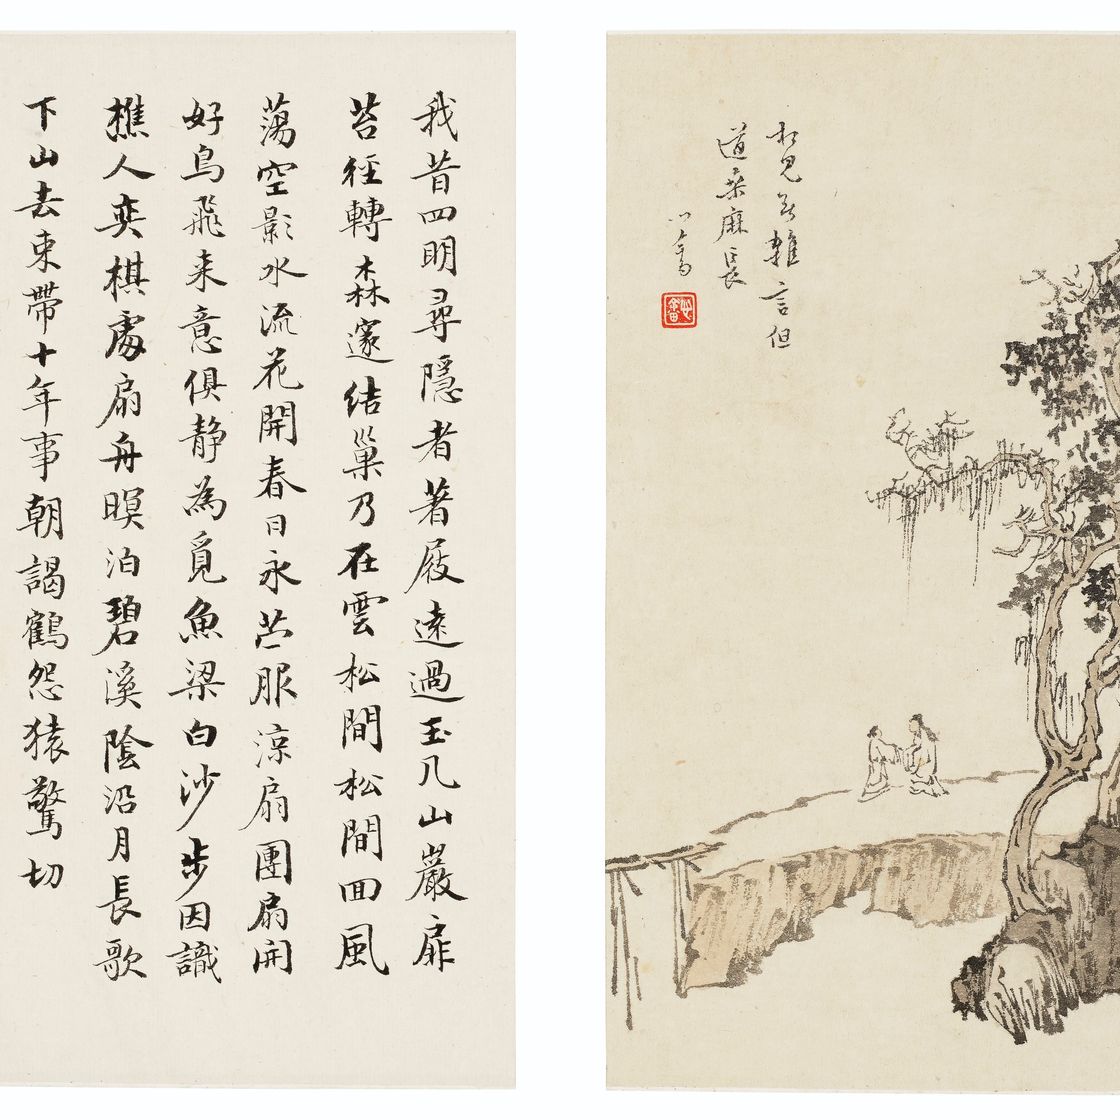 相見無雜言但
道桑麻長
心畬
心畬
我昔四明尋隱者著屐遠過玉几山巖扉
苔徑轉森邃結巢乃在雲松間松間回風
蕩空影水流花開春日永苎服涼扇團扇開
好鳥飛来意俱静為覓魚梁白沙步因識
樵人奕棋處扁舟暝泊碧溪陰沿月長歌
下山去束帶十年事朝謁鶴怨猿驚切